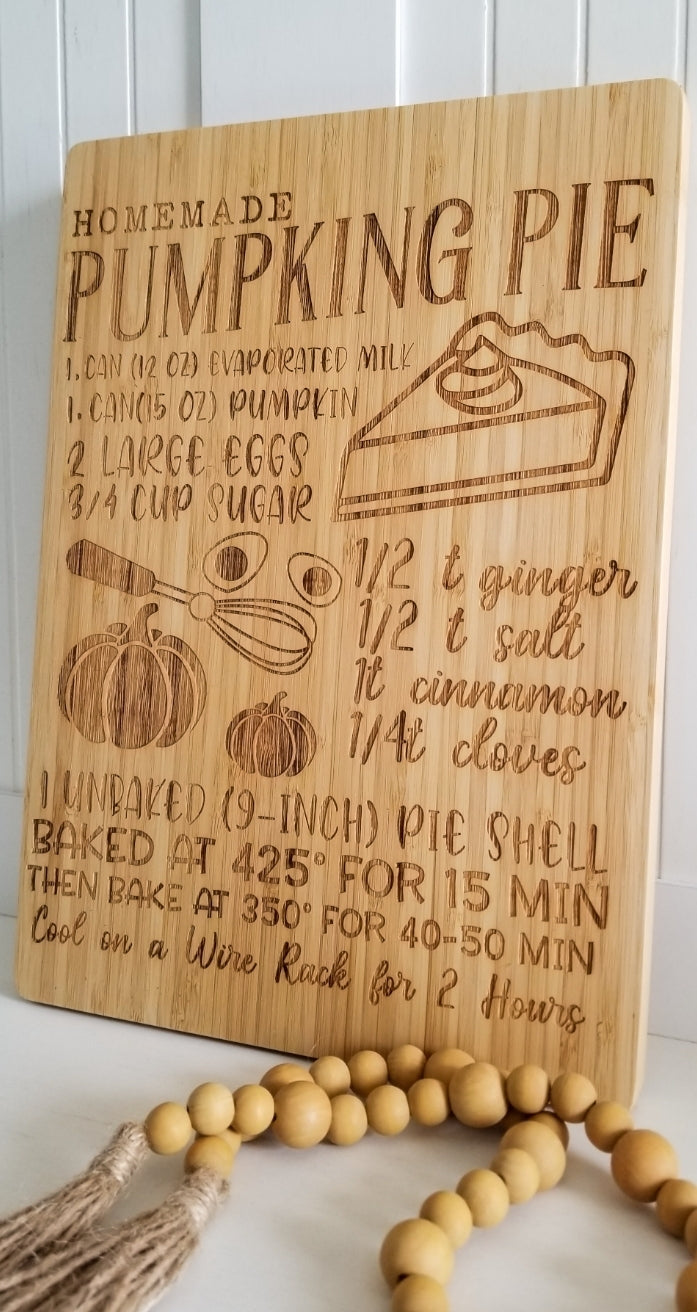 HOMEMADE
PUMPKING PIE
1. CAN (12 OZ) EVAPORATED MILK
1. CAN(15 OZ) PUMPKIN
2 LARGE EGGS
3/4 CUP SUGAR
1/2 t ginger
1/2 t salt
1t cinnamon
1/4t cloves
1 UNBAKED (9-INCH) PIE SHELL
BAKED AT 425° FOR 15 MIN
THEN BAKE AT 350° FOR 40-50 MIN
Cool on a Wire Rack for 2 Hours